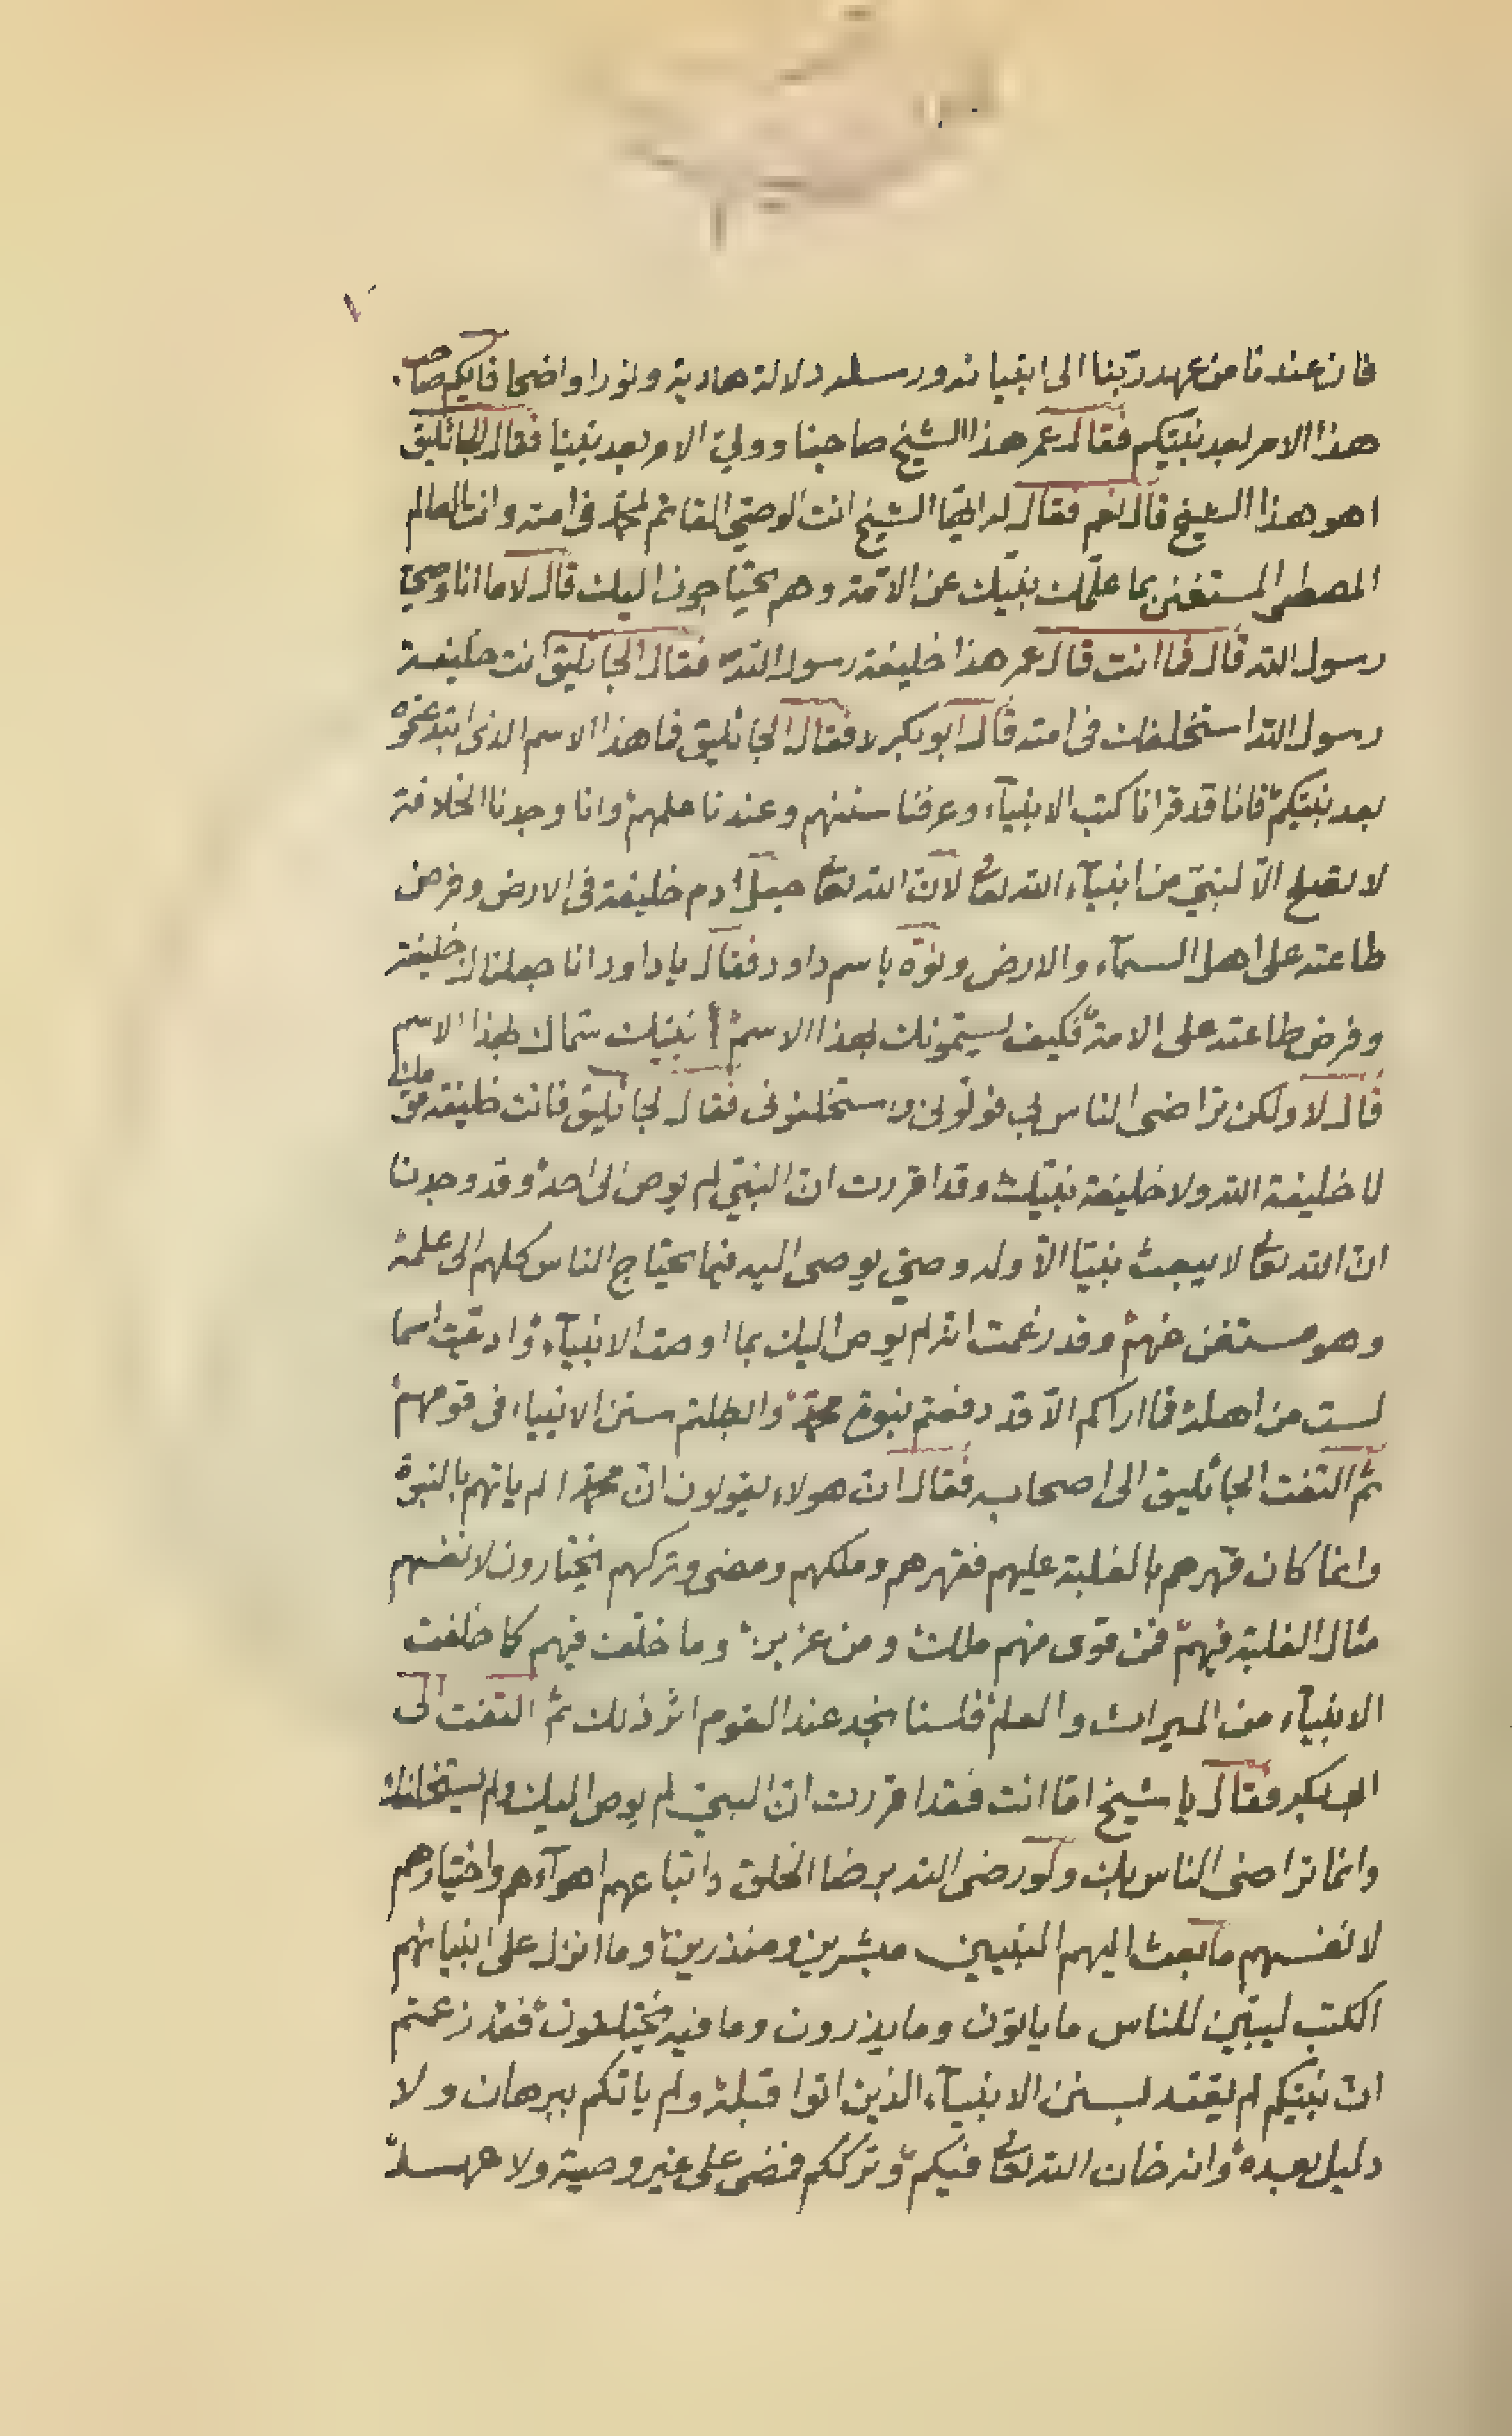 فان عندنا من عهد ربّنا الى انبيائه ورسله دلالة هادية ونورا واضحا فايكم صاحب
هذا الامر بعد نبيّكم فقال عمر هذا الشيخ صاحبنا ووليّ الامر بعد نبينا فقال الجاثليق
اهو هذا الشيخ قال نعم فقال له ايّها الشيخ انت الوصيّ القائم لمحمّد فى امته وانت العالم
المستغنى بما علّمك نبيّك عن الامّة وهم يحتاجون اليك قال لا ما انا وصىّ
رسول الله قال فما انت قال عمر هذا خليفة رسول الله فقال الجاثليق انت خليفة
رسول الله استخلفك فى امته قال ابوبكر لا فقال الجاثليق فما هذا الاسم الذى ابتدعتموه
بعد نبيّكم فانا قد قرانا كتب الانبيآء وعرفنا سننهم وعندنا علمهم وانا وجدنا الخلافة
لا تصلح الّا لنبىّ من انبيآء الله تعا لانّ الله تعا جعل ادم خليفة فى الارض وفرض
طاعته على اهل السمآء والارض ونوّه باسم داود فقال يا داود انا جعلناك خليفة
وفرض طاعته على الامة فكيف تسيتمونك بهذا الاسم أ نبيك سّماك بهذا الاسم
قال لا ولكن تراضى الناس بى فولّونى واستخلفونى فقال الجاثليق فانت خليفة قومك
لا خليفة الله ولا خليفة نبيّك وقد اقررت انّ النبىّ لم يوص الى احد وقد وجدنا
انّ الله تعا لا يبعث نبيّا الّا وله وصىّ يوصى اليه فيما يحتاج الناس كلهم الى علمه
وهو مستغن عنهم وقد زعمت انه لم يوص اليك بما اوصت الانبيآء وادعيت اسما
لست من اهله فما اراكم الّا قد دفعتم نبوة محمّد وابطلتم سنن الانبياء فى قومهم
ثمّ التفت الجاثليق الى اصحابه فقال انّ هولاء يقولون انّ محمّدا لم ياتهم بالنبوة
وانما كان قهرهم بالغلبة عليهم فقهرهم وملكهم ومضى وتركهم يختارون لانفسهم
مثال الغلبة فيهم فمن قوى منهم ملك ومن عز بزّ وما خلّف فيهم كما خلّفت
الانبيآء من الميراث والعلم فلسنا نجد عند القوم اثر ذلك ثمّ التفت الى
ابى بكر فقال يا شيخ امّا انت فقد اقررت انّ النبىّ لم يوص اليك ولم يستخلفك
وانما تراضى الناس بك ولو رضى الله برضا الخلق واتباعهم اهوآءهم واختيارهم
لانفسهم ما بعث اليهم النبيين مبشرين ومنذرين وما انزل على انبيائهم
الكتب ليبيّن للناس ما ياتون وما يذرون وما فيه يختلفون فقد زعمتم
انّ نبيّكم لم يقتد بسنن الانبيآء الذين اتوا قبله ولم ياتكم ببرهان ولا
دليل بعده وانه خان الله تعا فيكم وترككم فمضى على غير وصية ولا عهد